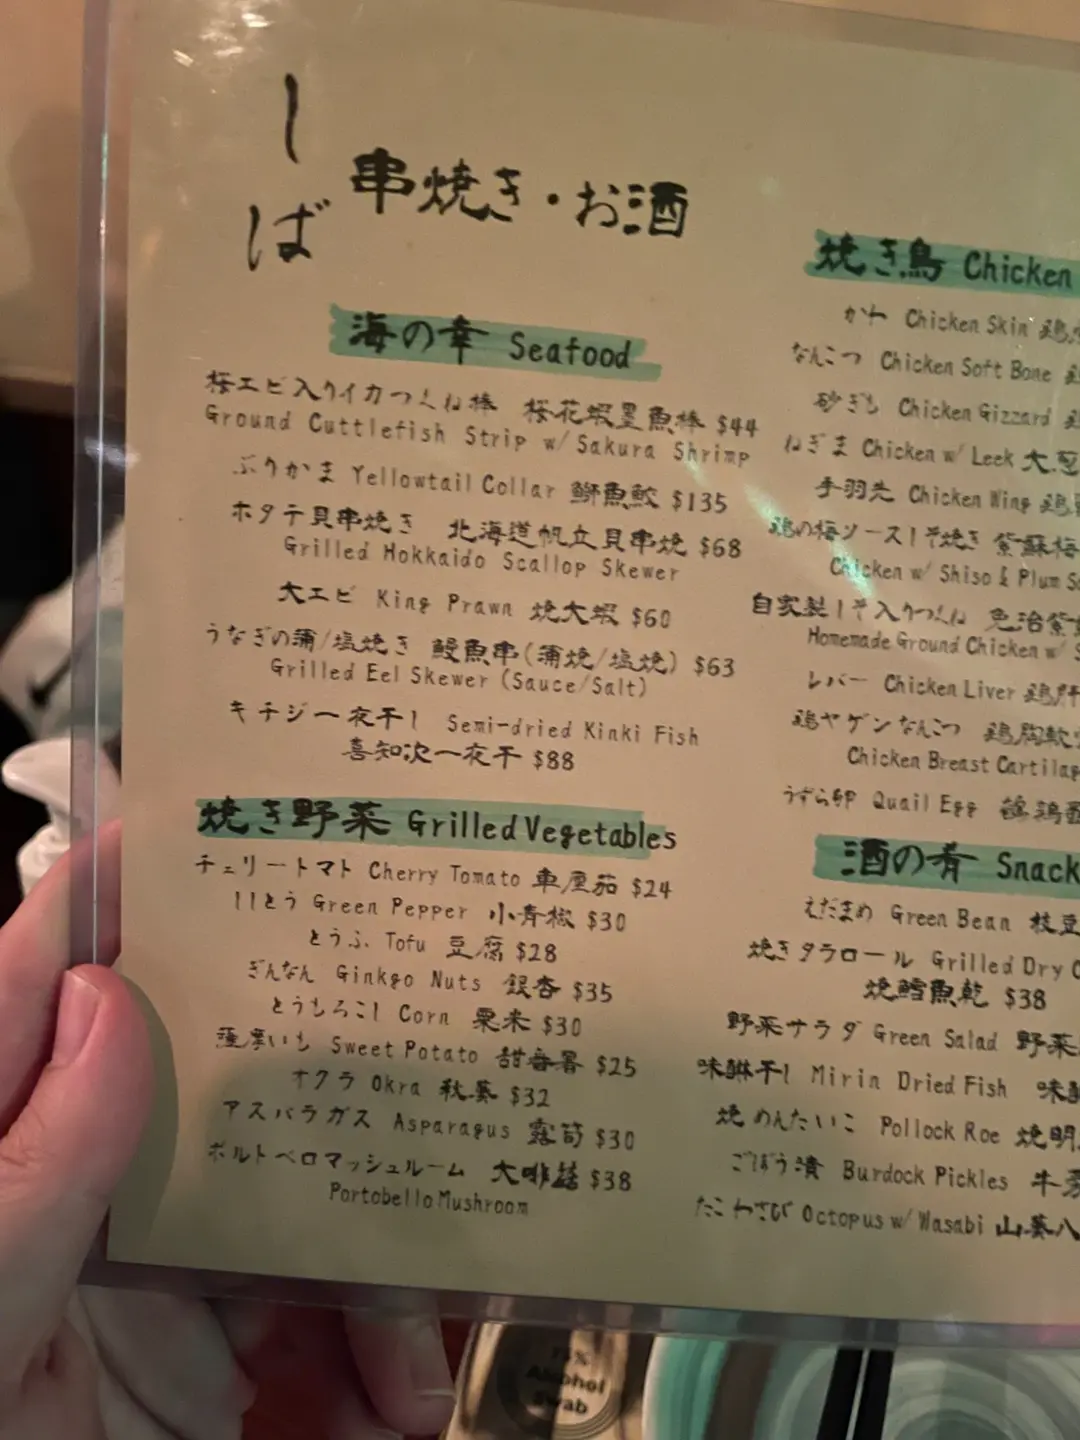 しば
串焼き・お酒
海の幸 Seafood
桜エビ入りイカつくね棒 桜花蝦墨魚棒 $44
Ground Cuttlefish Strip w/ Sakura Shrimp
ぶりかま Yellowtail Collar 鰤魚鮫 $135
ホタテ貝串焼き 北海道帆立貝串焼 $68
Grilled Hokkaido Scallop Skewer
大エビ King Prawn 焼大蝦 $60
うなぎの蒲/塩焼き 鰻魚串(蒲焼/塩焼) $63
Grilled Eel Skewer (Sauce/Salt)
キチジ一夜干し Semi-dried Kinki Fish
喜知次一夜干 $88
焼き野菜 Grilled Vegetables
チェリートマト Cherry Tomato 車厘茄 $24
ししとう Green Pepper 小青椒 $30
とうふ Tofu 豆腐 $28
ぎんなん Ginkgo Nuts 銀杏 $35
とうもろこし Corn 粟米 $30
薩摩いも Sweet Potato 甜番薯 $25
オクラ Okra 秋葵 $32
アスパラガス Asparagus 露筍 $30
ポルトベロマッシュルーム 大啡菇 $38
Portobello Mushroom
焼き鳥 Chicken
かわ Chicken Skin 鶏
なんこつ Chicken Soft Bone
砂ぎも Chicken Gizzard
ねぎま Chicken w/ Leek 大葱
手羽先 Chicken Wing 鶏
鶏の梅ソースしそ焼き 紫蘇梅
Chicken w/ Shiso & Plum
自家製しそ入りつくね 免治紫
Homemade Ground Chicken w/
レバー Chicken Liver 鶏肝
鶏ヤゲンなんこつ 鶏胸軟
Chicken Breast Cartilag
うずら卵 Quail Egg 鵪鶉
酒の肴 Snack
えだまめ Green Bean 枝豆
焼きタラロール Grilled Dry
焼鱈魚乾 $38
野菜サラダ Green Salad 野菜
味醂干し Mirin Dried Fish 味
焼めんたいこ Pollock Roe 焼明
ごぼう漬 Burdock Pickles 牛
たこわさび Octopus w/ Wasabi 山葵八
75%
Alcohol
Swab